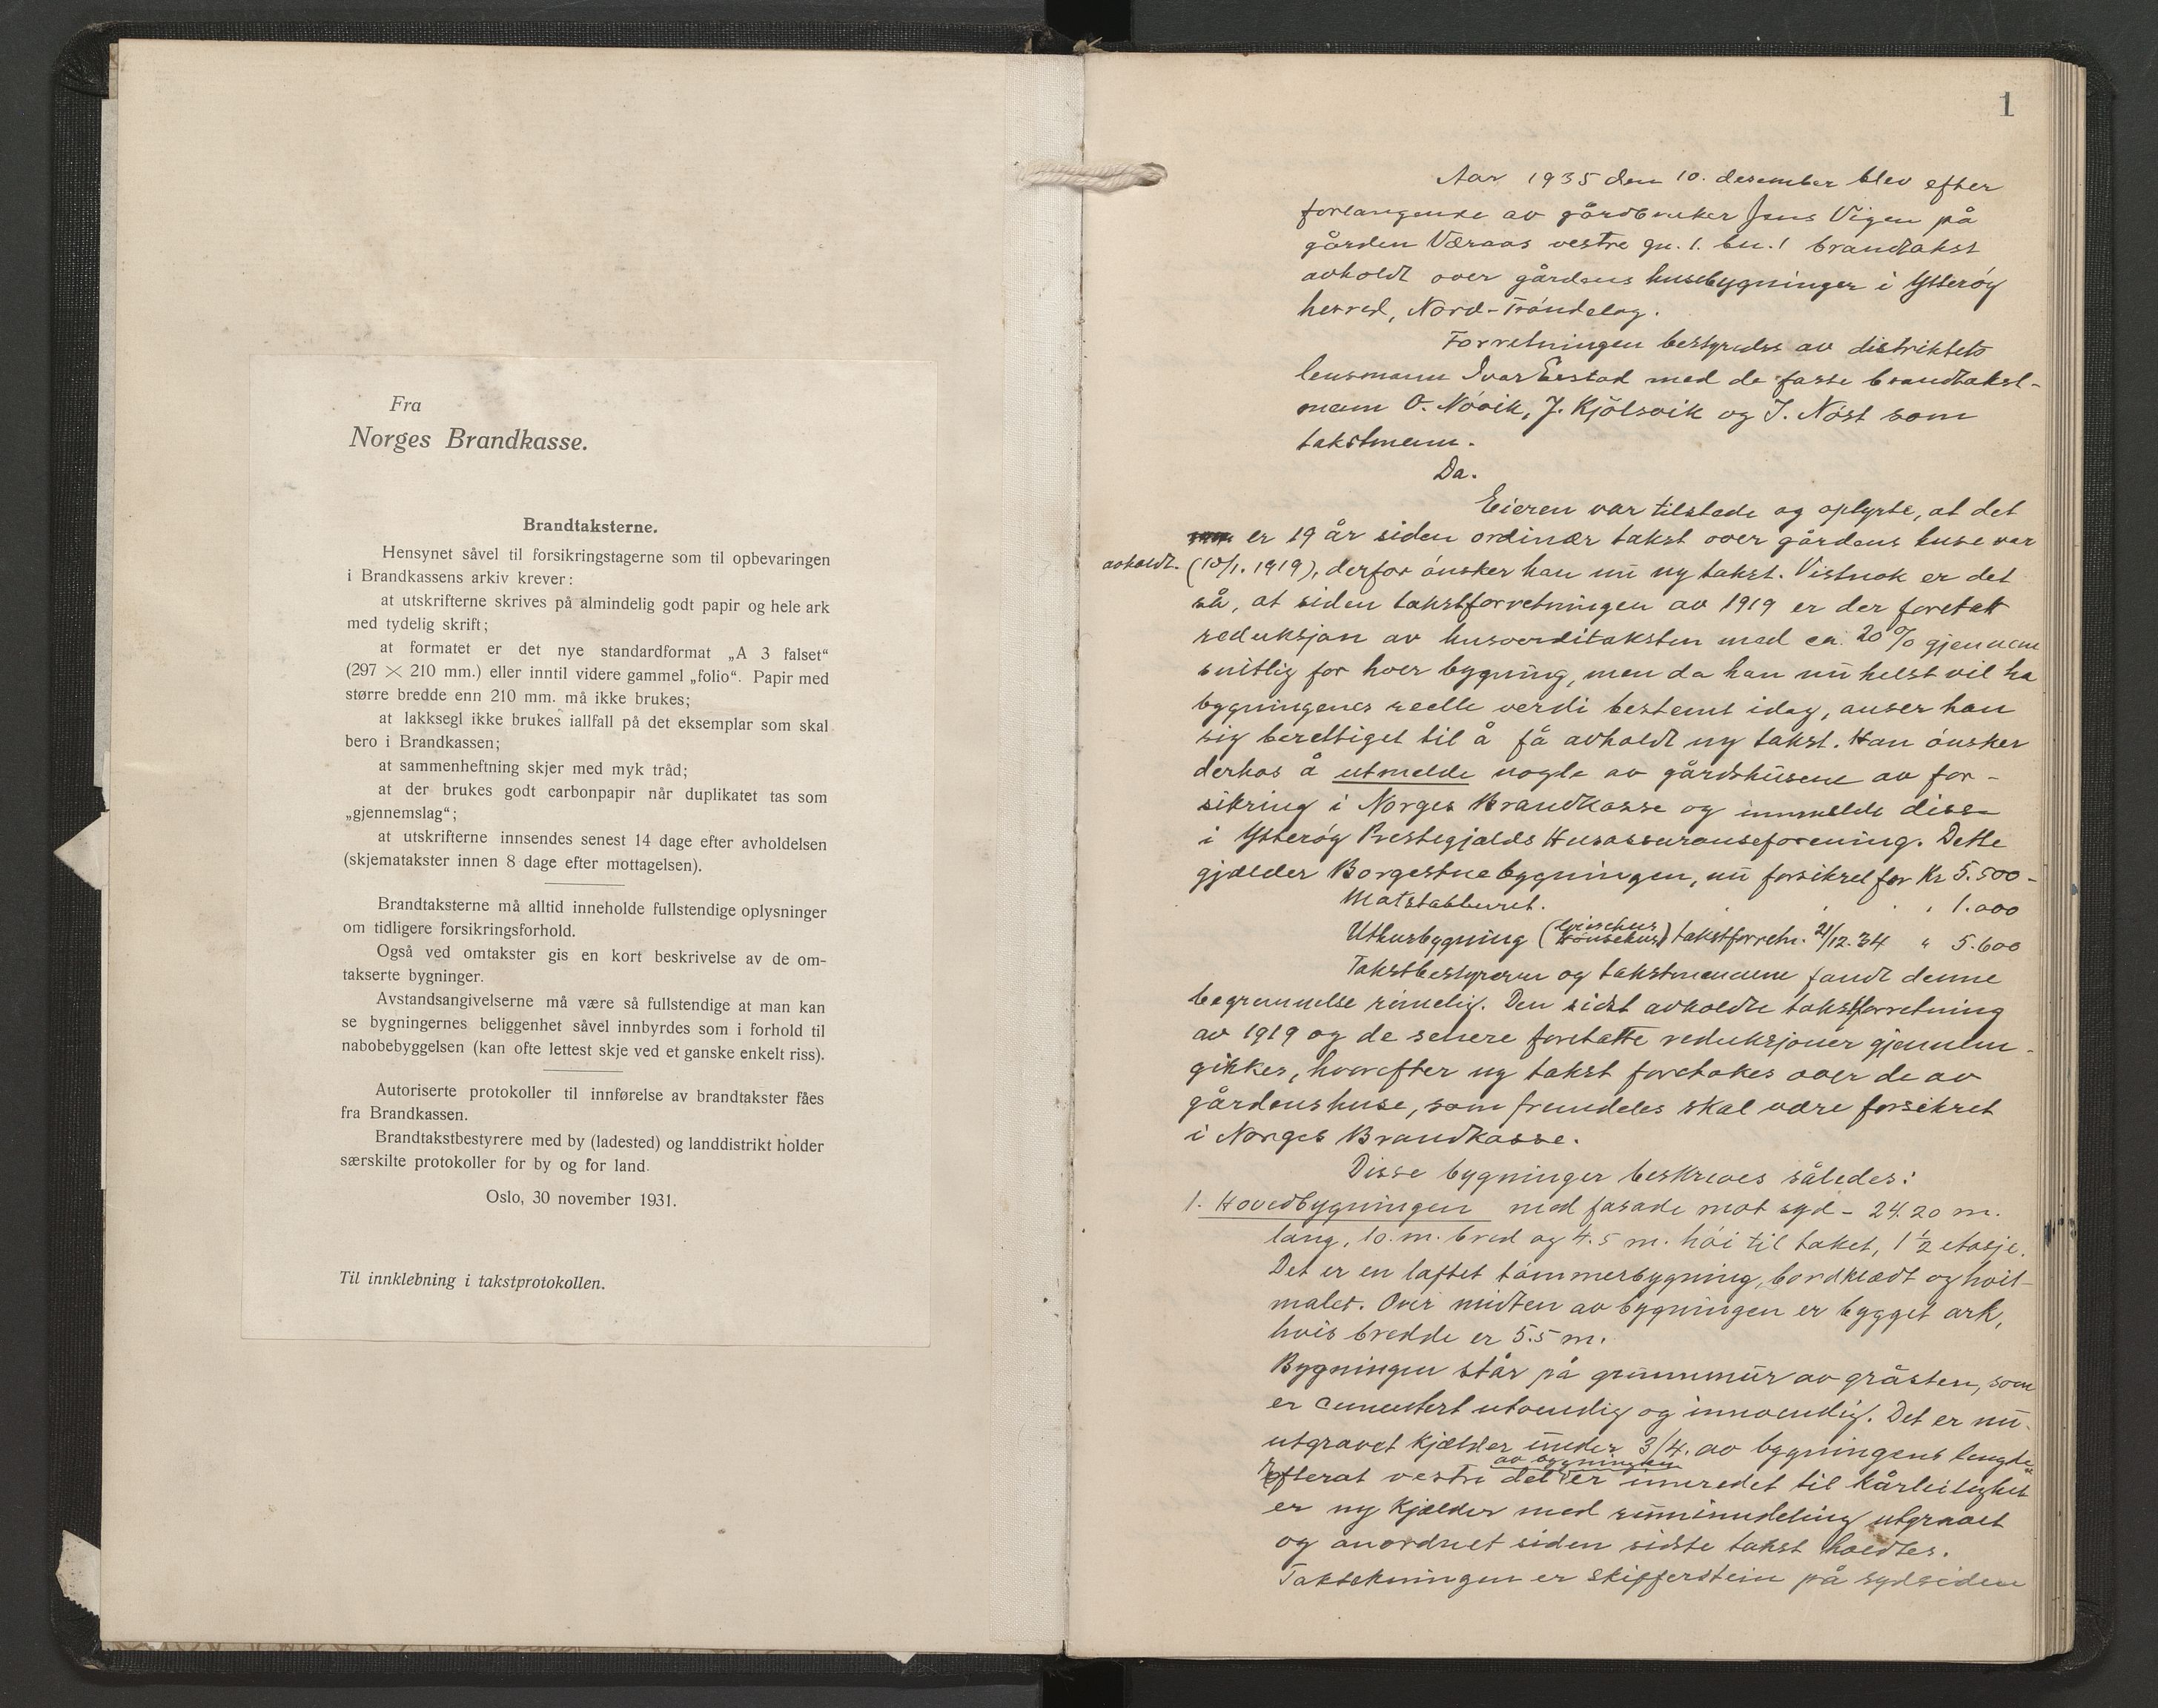 Fra
Norges Brandkasse.
Brandtaksterne.
Hensynet såvel til forsikringstagerne som til opbevaringen
i Brandkassens arkiv krever:
at utskrifterne skrives på almindelig godt papir og hele ark
med tydelig skrift;
at formatet er det nye standardformat „A 3 falset“
(297 × 210 mm.) eller inntil videre gammel „folio“. Papir med
større bredde enn 210 mm. må ikke brukes;
at lakksegl ikke brukes iallfall på det eksemplar som skal
bero i Brandkassen;
at sammenheftning skjer med myk tråd;
at der brukes godt carbonpapir når duplikatet tas som
„gjennemslag“;
at utskrifterne innsendes senest 14 dage efter avholdelsen
(skjematakster innen 8 dage efter mottagelsen).
Brandtaksterne må alltid inneholde fullstendige oplysninger
om tidligere forsikringsforhold.
Også ved omtakster gis en kort beskrivelse av de om-
takserte bygninger.
Avstandsangivelserne må være så fullstendige at man kan
se bygningernes beliggenhet såvel innbyrdes som i forhold til
nabobebyggelsen (kan ofte lettest skje ved et ganske enkelt riss).
Autoriserte protokoller til innførelse av brandtakster fåes
fra Brandkassen.
Brandtakstbestyrere med by (ladested) og landdistrikt holder
særskilte protokoller for by og for land.
Oslo, 30 november 1931.
Til innklebning i takstprotokollen.
1
Aar 1935 den 10. desember blev efter
forlangende av gårdbruker Jens Vigen på
gården Væraas vestre gn. 1. bn. 1 brandtakst
avholdt over gårdens husebygninger i Ytterøy
herred, Nord-Trøndelag.
Forretningen bestyredes av distriktets
lensmann Ivar Eestad med de faste brandtakst-
menn O. Nøvik, J. Kjølsvik og J. Nøst som
takstmenn.
Da.
Eieren var tilstede og oplyste, at det
er 19 år siden ordinær takst over gårdens huse var
avholdt. (10/1. 1919), derfor ønsker han nu ny takst. Vistnok er det
så, at siden takstforretningen av 1919 er der foretatt
reduksjon av husverditaksten med ca. 20 % gjennem
snitlig for hver bygning, men da han nu helst vil ha
bygningenes reelle verdi bestemt idag, anser han
sig berettiget til å få avholdt ny takst. Han ønsker
derhos å utmelde nogle av gårdshusene av for-
sikring i Norges Brandkasse og innmelde disse
i Ytterøy Prestegjælds Husassuranseforening. Dette
gjælder Borgestuebygningen, nu forsikret for Kr 5.500-
Matstabburet. " 1.000
Utkusbygning (Grisehus Hønsehus) takstforretn. 21/12.34 " 5.600
Takstbestyreren og takstmennene fandt denne
begrunnelse rimelig. Den sidst avholdte takstforretning
av 1919 og de senere foretatte reduksjoner gjennem-
gikkes, hvorefter ny takst foretakes over de av
gårdens huse, som fremdeles skal være forsikret
i Norges Brandkasse.
Disse bygninger beskrives således:
1. Hovedbygningen med fasade mot syd - 24.20 m.
lang, 10. m. bred og 4.5 m. høi til taket, 1 1/2 etasje.
Det er en laftet tømmerbygning, bordklædt og hvit-
malet. Over midten av bygningen er bygget ark,
hvis bredde er 5.5 m.
Bygningen står på grunnmur av gråsten, som
er cementert utvendig og innvendig. Det er nu
utgravet kjælder under 3/4. av bygningens lengde
Efterat vestre del av bygningen er innredet til kårleilighet
er ny kjælder med rumminndeling utgravet
og anordnet siden sidste takst holdtes.
Taktekningen er skifferstein på sydsiden